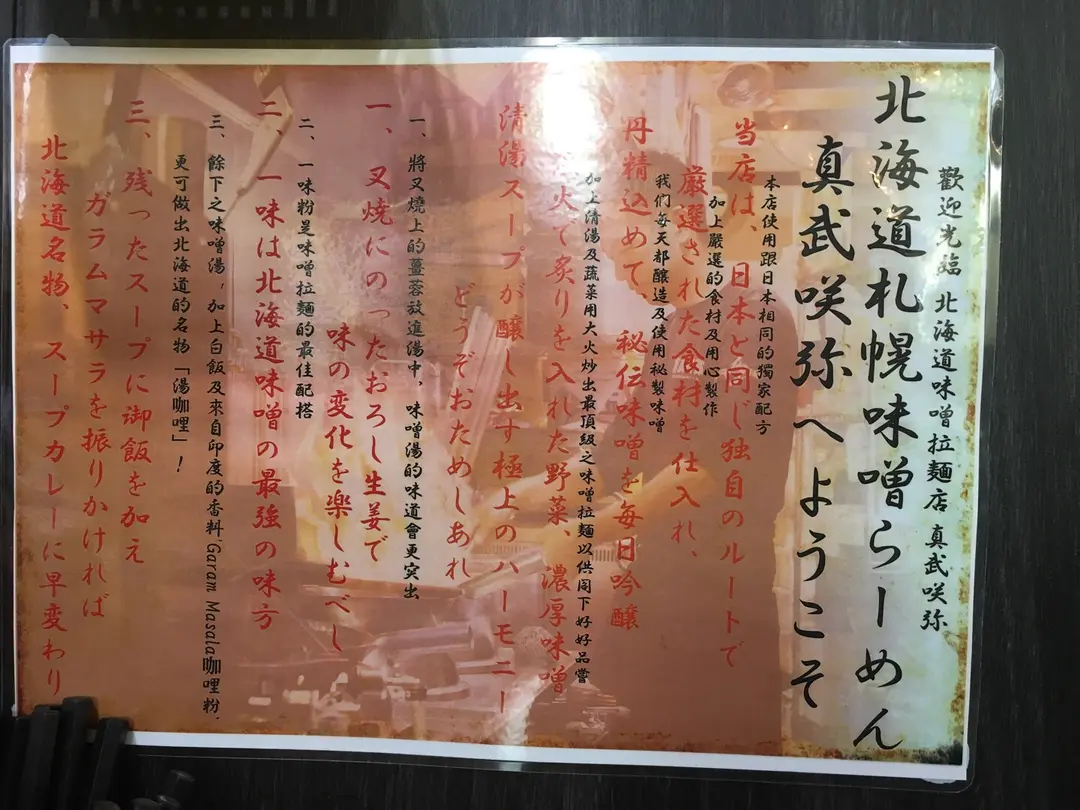 歡迎光臨 北海道味噌拉麵店 真武咲弥
北海道札幌味噌らーめん
真武咲弥へようこそ
本店使用跟日本相同的獨家配方
当店は、日本と同じ独自のルートで
加上嚴選的食材及用心製作
厳選された食材を仕入れ、
我們每天都釀造及使用秘製味噌
丹精込めて 秘伝味噌を毎日吟醸
加上清湯及蔬菜用大火炒出最頂級之味噌拉麵以供閣下好好品嘗
火で炙りを入れた野菜、濃厚味噌
清湯スープが醸し出す極上のハーモニー
どうぞおためしあれ
一、將叉燒上的薑蓉放進湯中，味噌湯的味道會更突出
一、叉焼にのったおろし生姜で
味の変化を楽しむべし
二、一味粉是味噌拉麵的最佳配搭
二、一味は北海道味噌の最強の味方
三、餘下之味噌湯，加上白飯及來自印度的香料，Garam Masala咖哩粉，
更可做出北海道的名物「湯咖哩」！
三、残ったスープに御飯を加え
ガラムマサラを振りかければ
北海道名物、スープカレーに早変わり